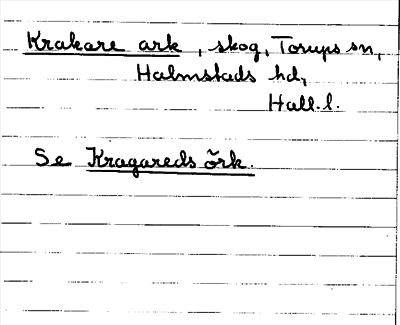 Krakare ark, skog, Torups sn,
Halmstads hd,
Hall.l.
Se Kragareds örk.